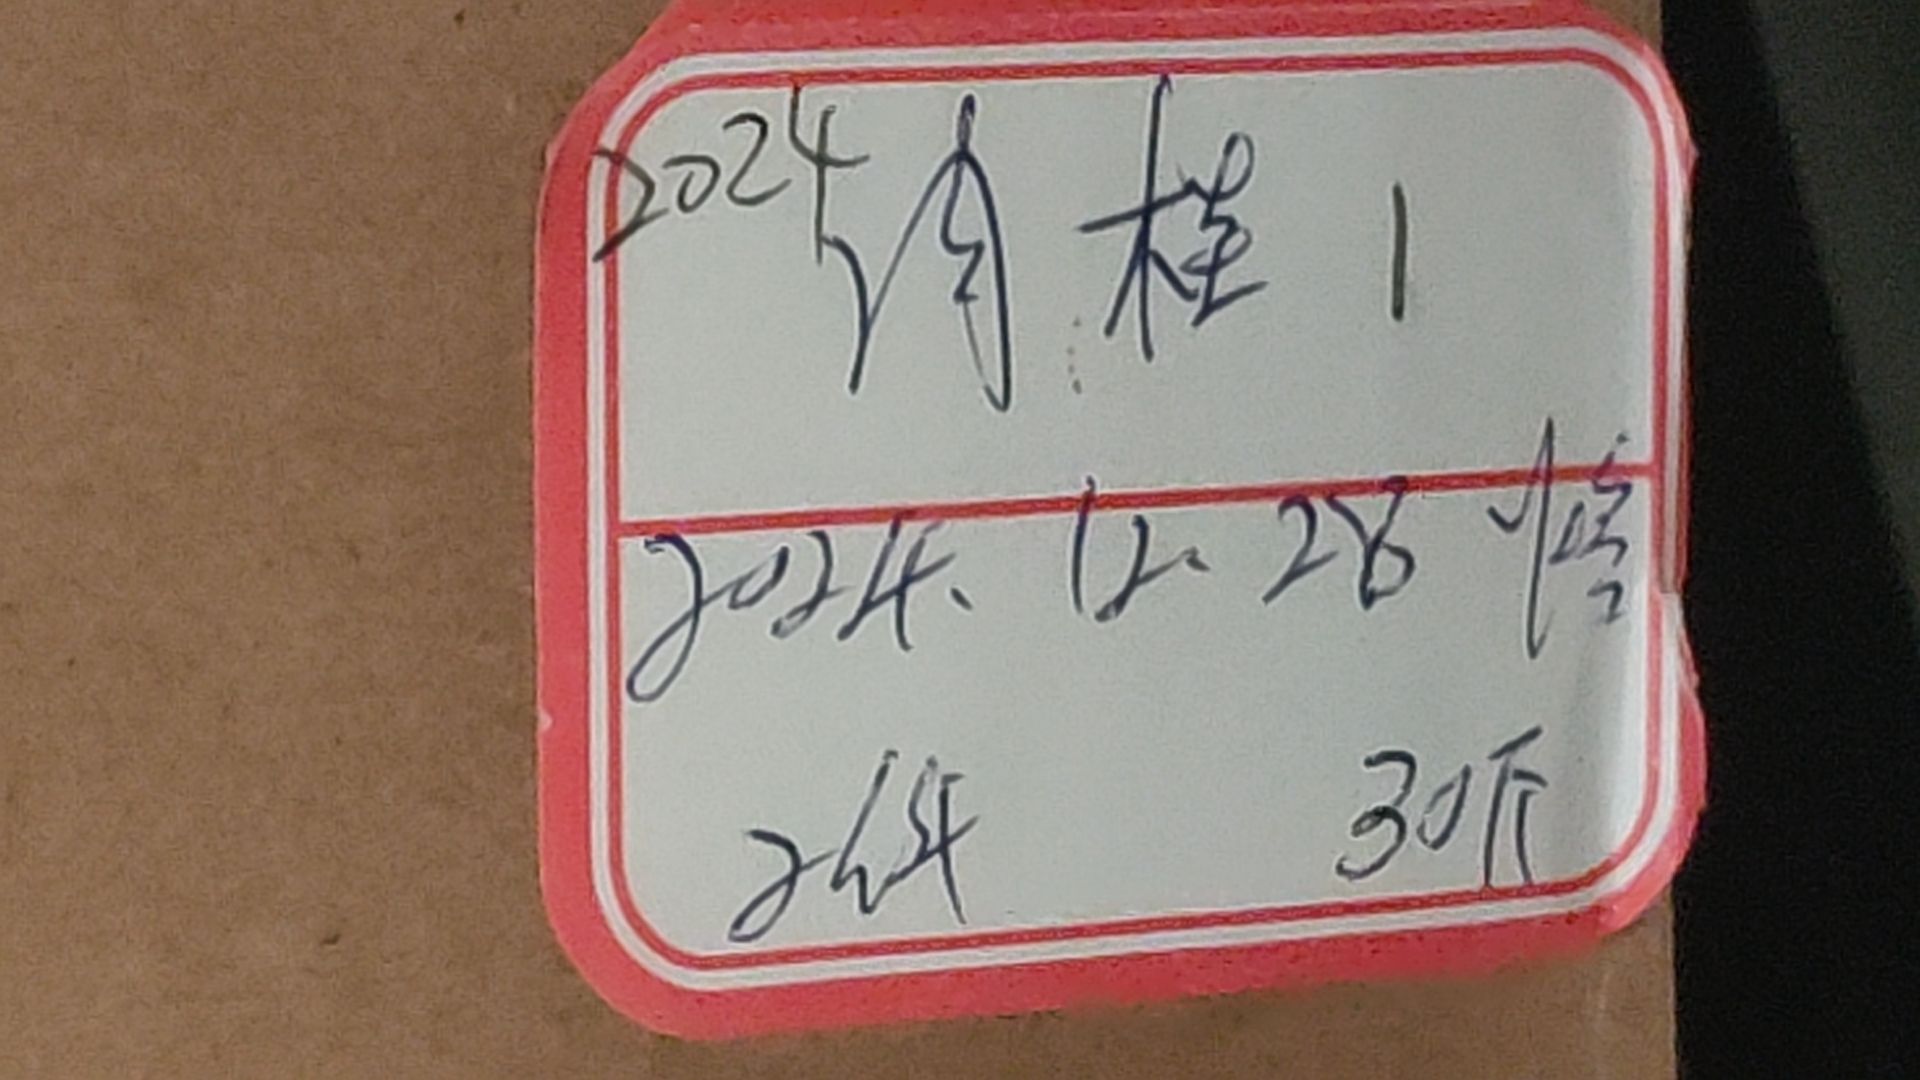 2024肉桂 1
2024.12.28
2件 30斤